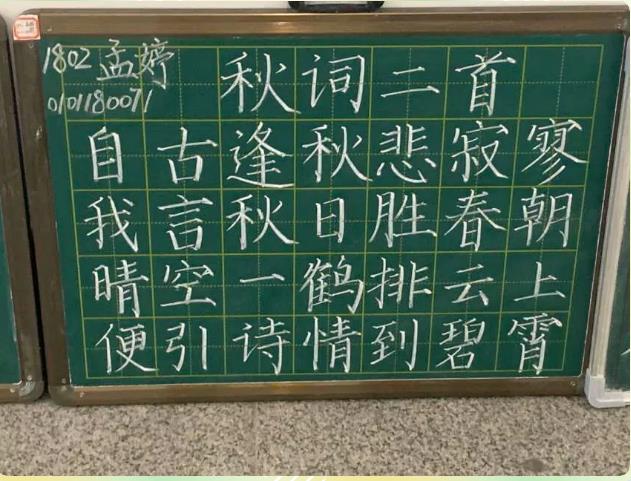 1802 孟婷
0101180071
秋词二首
自古逢秋悲寂寥
我言秋日胜春朝
晴空一鹤排云上
便引诗情到碧霄